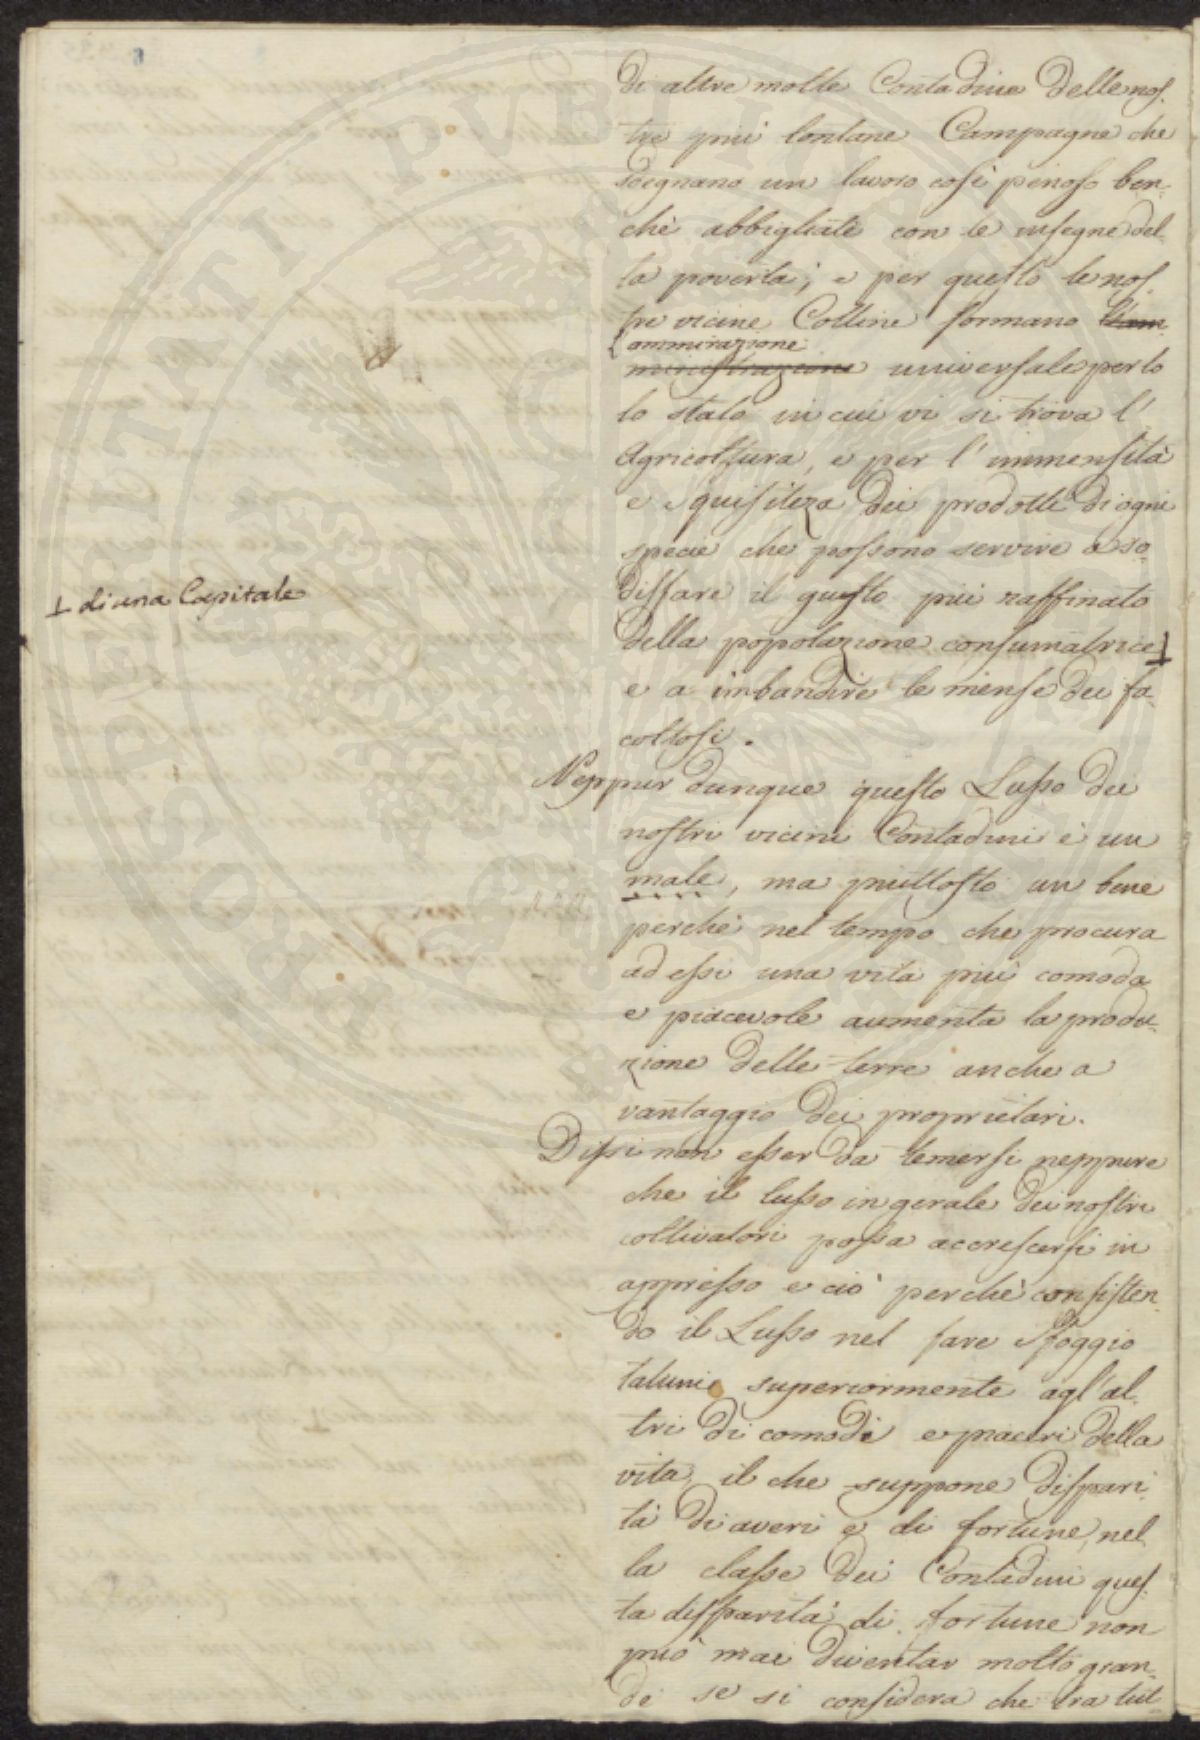 di altre molte Contadine delle nos-
tre più lontane Campagne che
sdegnano un lavoro così penoso ben-
chè abbigliate con le insegne del-
la povertà; e per questo le nos-
tre vicine Colline formano l'am
ammirazione
ministrazione universale per lo
lo stato in cui vi si trova l'
Agricoltura, e per l'immensità
e squisiteza dei prodotti di ogni
specie che possono servire a so-
disfare il gusto più raffinato
della popolazione consumatrice ⊥
⊥ di una Capitale
e a imbandire le mense dei fa-
coltosi.
Neppur dunque questo Lusso dei
nostri vicini Contadini è un
male, ma piuttosto un bene
perchè nel tempo che procura
ad essi una vita più comoda
e piacevole aumenta la produ-
zione delle terre anche a
vantaggio dei proprietari.
Dissi non esser da temersi neppure
che il lusso in gerale dei nostri
coltivatori possa accrescersi in
appresso e ciò perchè consisten-
do il Lusso nel fare sfoggio
taluni superiormente agl'al-
tri di comodi e piaceri della
vita, il che suppone dispari-
tà di averi e di fortune, nel-
la classe dei Contadini ques-
ta disparità di fortune non
può mai diventar molto gran-
de se si considera che tra tut-
PROSPERITATI PVBLICAE